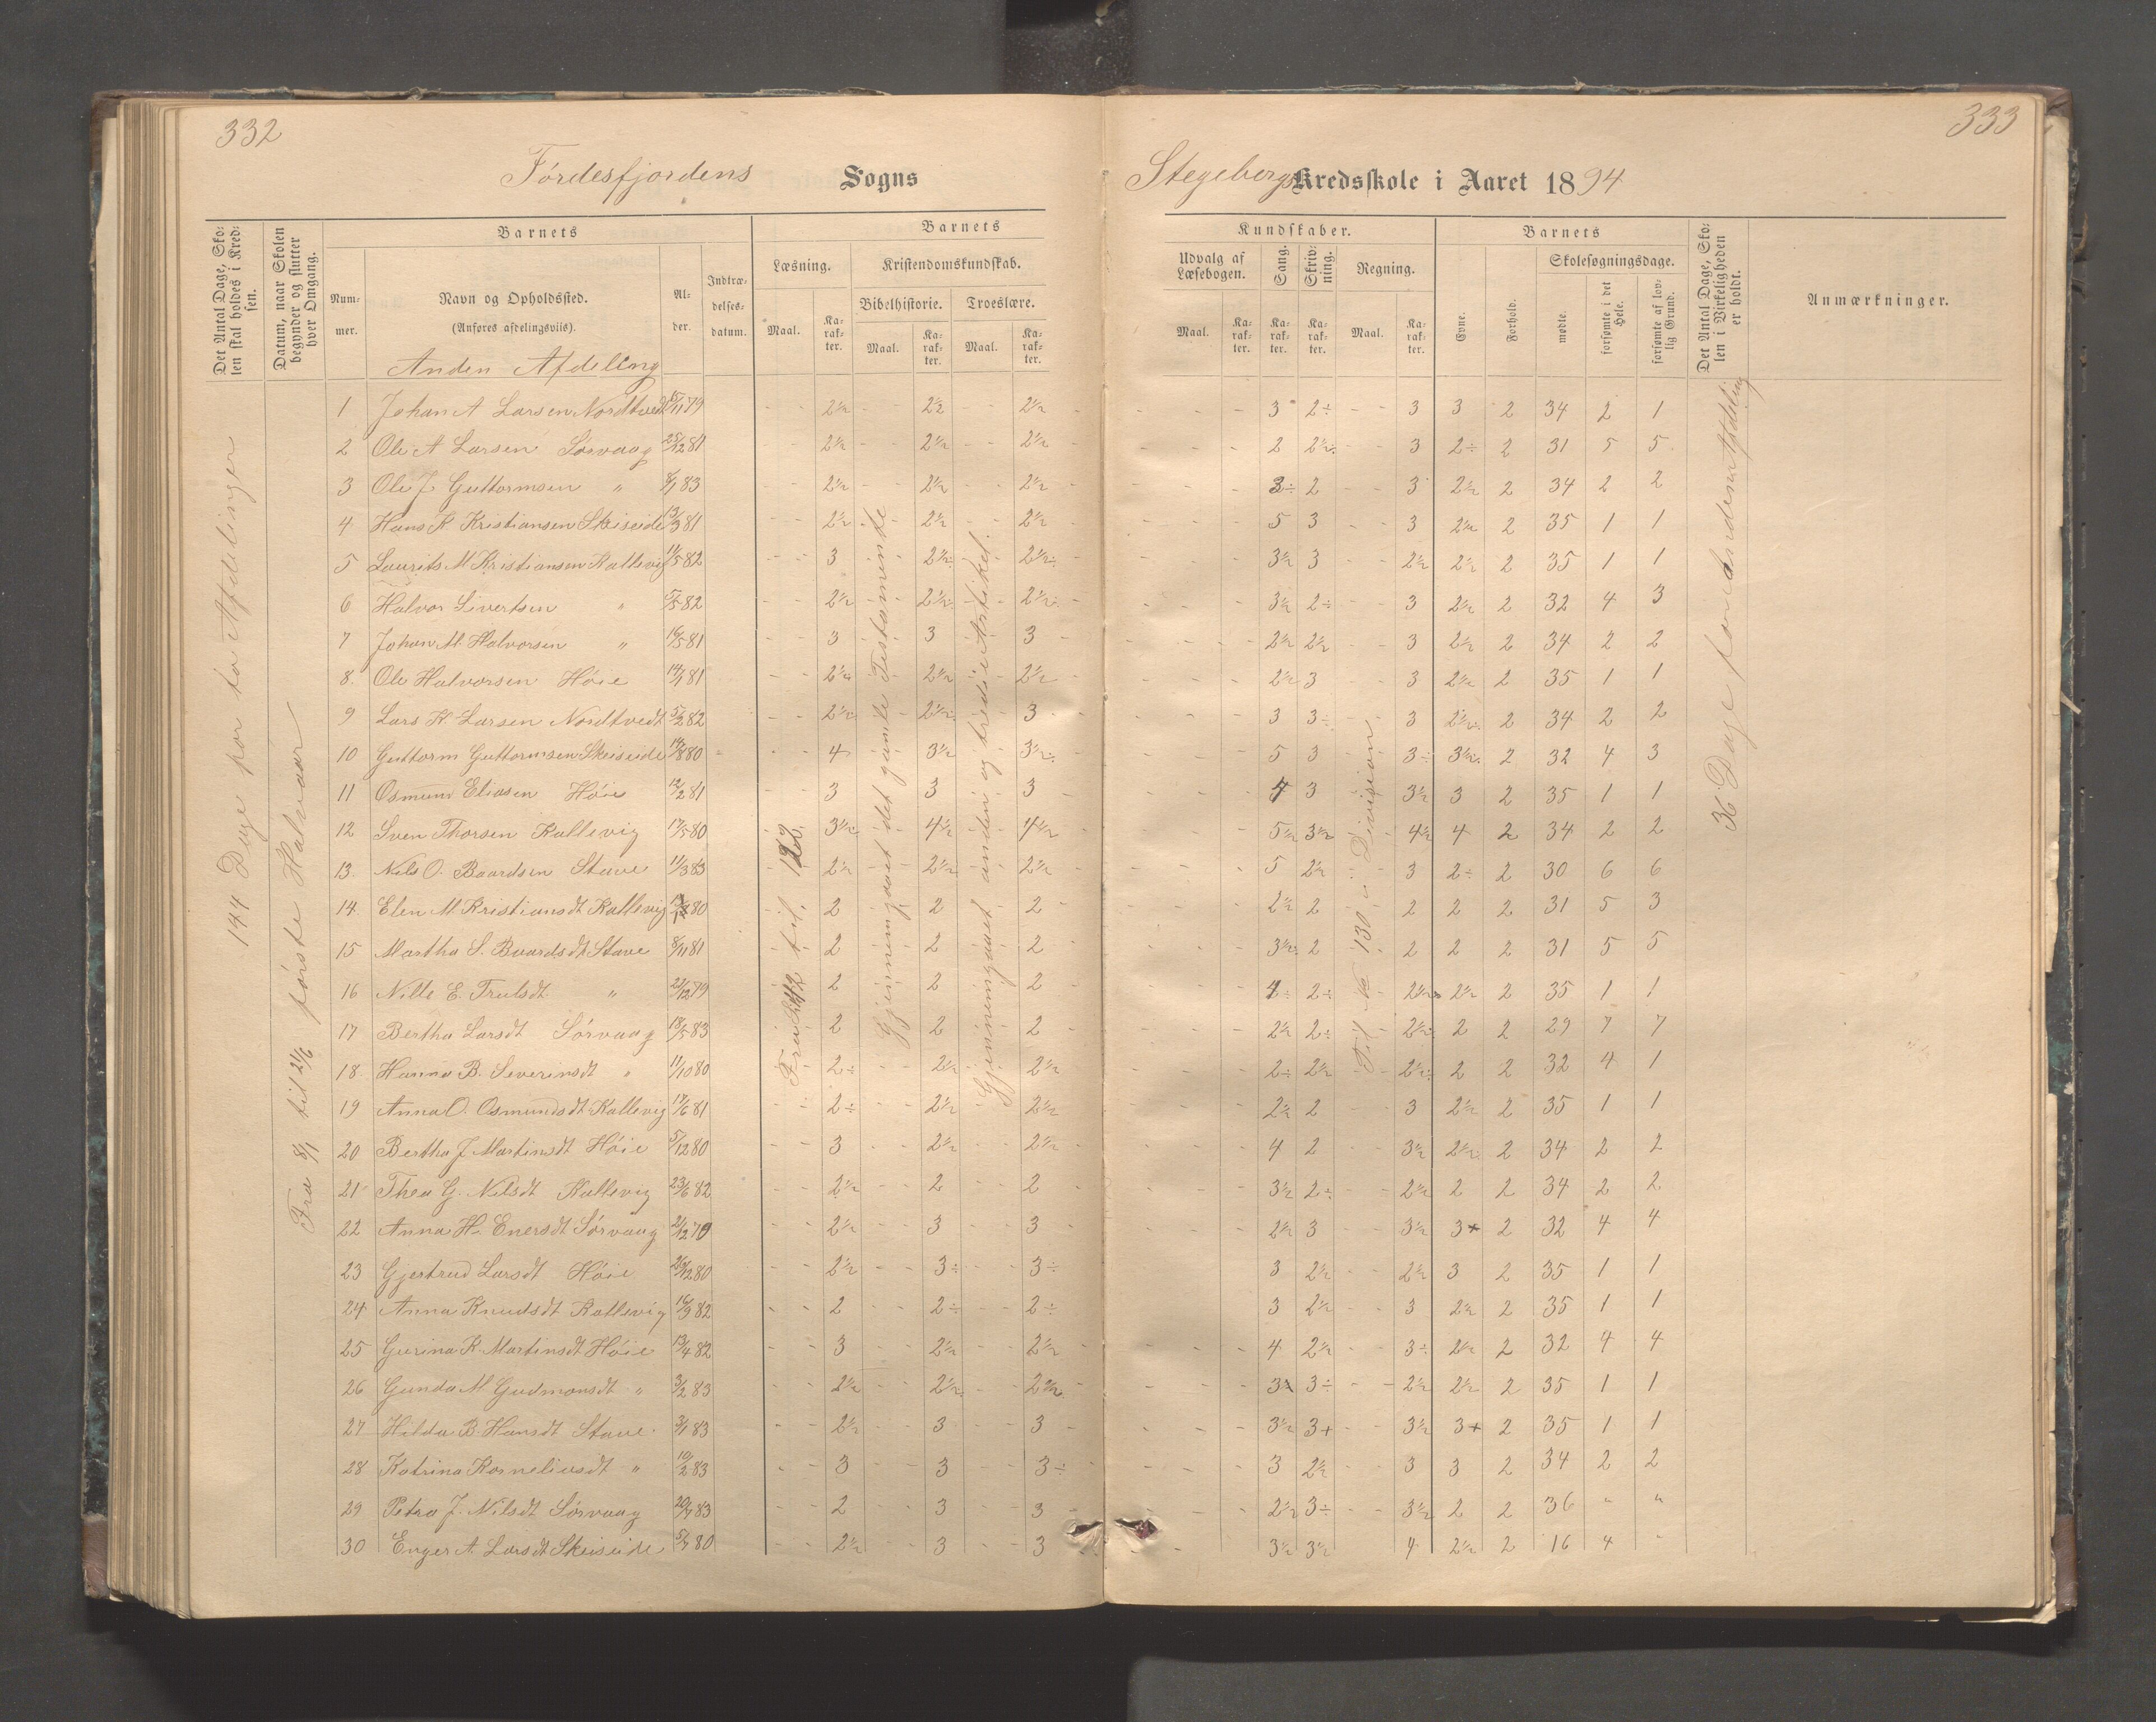 332
333
Fördesfjordens Sogns
Stegebergs Kredsskole i Aaret 1894
Det Antal Dage, Skolen skal holdes i Kredsen.
Datum, naar Skolen begynder og slutter hver Omgang.
Barnets
Nummer.
Navn og Opholdssted.
(Anføres afdelingsviis).
Alder.
Indtrædelsesdatum.
Barnets
Læsning.
Kristendomskundskab.
Bibelhistorie.
Troeslære.
Maal.
Karakter.
Maal.
Karakter.
Maal.
Karakter.
Kundskaber.
Udvalg af Læsebogen.
Sang.
Skrivning.
Regning.
Maal.
Karakter.
Karakter.
Karakter.
Maal.
Karakter.
Barnets
Evne.
Forhold.
Skolesøgningsdage.
mødte.
forsømte i det Hele.
forsømte af lovlig Grund.
Det Antal Dage, Skolen i Virkeligheden er holdt.
Anmærkninger.
Anden Afdeling
144 Dage for to Afdelinger
Fra 8/1 til 21/6 første Halvaar
Fra 42 til 122
Gjennemgaaet det gamle Testamente
Gjennemgaaet anden og tredie Artikel.
Til No 130 i Division
36 Dage for anden Afdeling
1 Johan A Larsen Nordtvedt /11 79 2½ 2½ 2½ 3 2÷ 3 3 2 34 2 1
2 Ole A Larsen Sørvaag 25/12 81 2½ 2½ 2½ 2 2½÷ 3 2÷ 2 31 5 5
3 Ole J Guttormsen " 8/1 83 2½ 2½ 2½ 3÷ 2 3 2½ 2 34 2 2
4 Hans K Kristiansen Skeiseide 13/3 81 2½ 2½ 2½ 5 3 3 2½ 2 35 1 1
5 Laurits M Kristiansen Kallevig 11/5 82 3 2½ 2½÷ 3½ 3 2½ 2½ 2 35 1 1
6 Halvor Sivertsen " 7/5 82 2½ 2½ 2½ 3½ 2÷ 3 2½ 2 32 4 3
7 Johan M. Halvorsen " 16/5 81 3 3 3 2½ 2½ 3 2½ 2 34 2 2
8. Ole Halvorsen Høie 14/7 81 2½ 2½ 2½ 2½ 3 3 2½ 2 35 1 1
9 Lars K Larsen Nordtvedt 5/2 82 2½ 2½ 3 3 3÷ 3 2½ 2 34 2 2
10 Guttorm Guttormsen Skeiseide 14/8 80 4 3½ 3½ 5 3 3÷ 3½ 2 32 4 3
11 Osmund Eliasen Høie 12/2 81 3 3 3 4 3 3½ 3 2 35 1 1
12 Sven Thorsen Kallevig 17/5 80 3½ 4½ 4½ 5½ 3½ 4½ 4 2 34 2 2
13. Nils O. Baardsen Stave 11/3 83 2½ 2½ 2½ 5 2½ 3 2÷ 2 30 6 6
14. Elen M Kristiansdt Kallevig 80 2 2 2 2½ 2 2 2 2 31 5 3
15 Martha S. Baardsdt Stave 8/11 81 2 2 2 3½ 2 2 2 2 31 5 5
16 Nille E. Trulsdt " 21/12 79 2 2 2 4÷ 2÷ 2½ 2½ 2 35 1 1
17 Bertha Larsdt Sørvaag 18/5 83 2 2 2 2½ 2÷ 2½ 2 2 29 7 7
18. Hanna B. Severinsdt " 11/10 80 2÷ 2½ 2½ 2÷ 2½ 2½ 2 2 32 4 1
19 Anna O. Osmundsdt Kallevig 17/6 81 2÷ 2½ 2½ 2½ 2 3 2½ 2 35 1 1
20 Bertha J Martinsdt Høie 5/12 80 3 2½ 2½ 4 2 3½ 2½ 2 34 2 2
21 Thea G. Nilsdt Kallevig 23/6 82 2½ 2 2 3½ 2÷ 2½ 2 2 34 2 2
22 Anna H. Enersdt Sørvaag 2/12 79 2½ 3 3 2½ 3 3½ 3+ 2 32 4 4
23 Gjertrud Larsdt Høie 26/12 80 2½ 3÷ 3÷ 3 2½ 2½ 3 2 35 1 1
24 Anna Knudsdt Kallevig 16/9 82 2 2÷ 2÷ 3 2½ 3 2½ 2 35 1 1
25 Gurina K. Martinsdt Høie 13/4 82 3 2½ 2½ 4 2½ 3÷ 2½ 2 32 4 4
26 Gunda M Gudmansdt " 3/2 83 2½ 2½ 2½ 3 3÷ 2½ 2½ 2 35 1 1
27 Hilda B. Hansdt Stave 3/1 83 2½ 3 3 3½ 3+ 3½ 3+ 2 35 1 1
28 Katrina Korneliusdt " 10/2 83 3 3 3÷ 3 2½ 3 3 2 34 2 2
29 Petra J. Nilsdt Sørvaag 20/4 83 2 3 3 2½ 3÷ 3½ 2 2 36 " "
30 Enger A. Larsdt Skeiseide 5/7 80 2½ 3 3 3½ 3½ 4 2½ 2 16 4 "